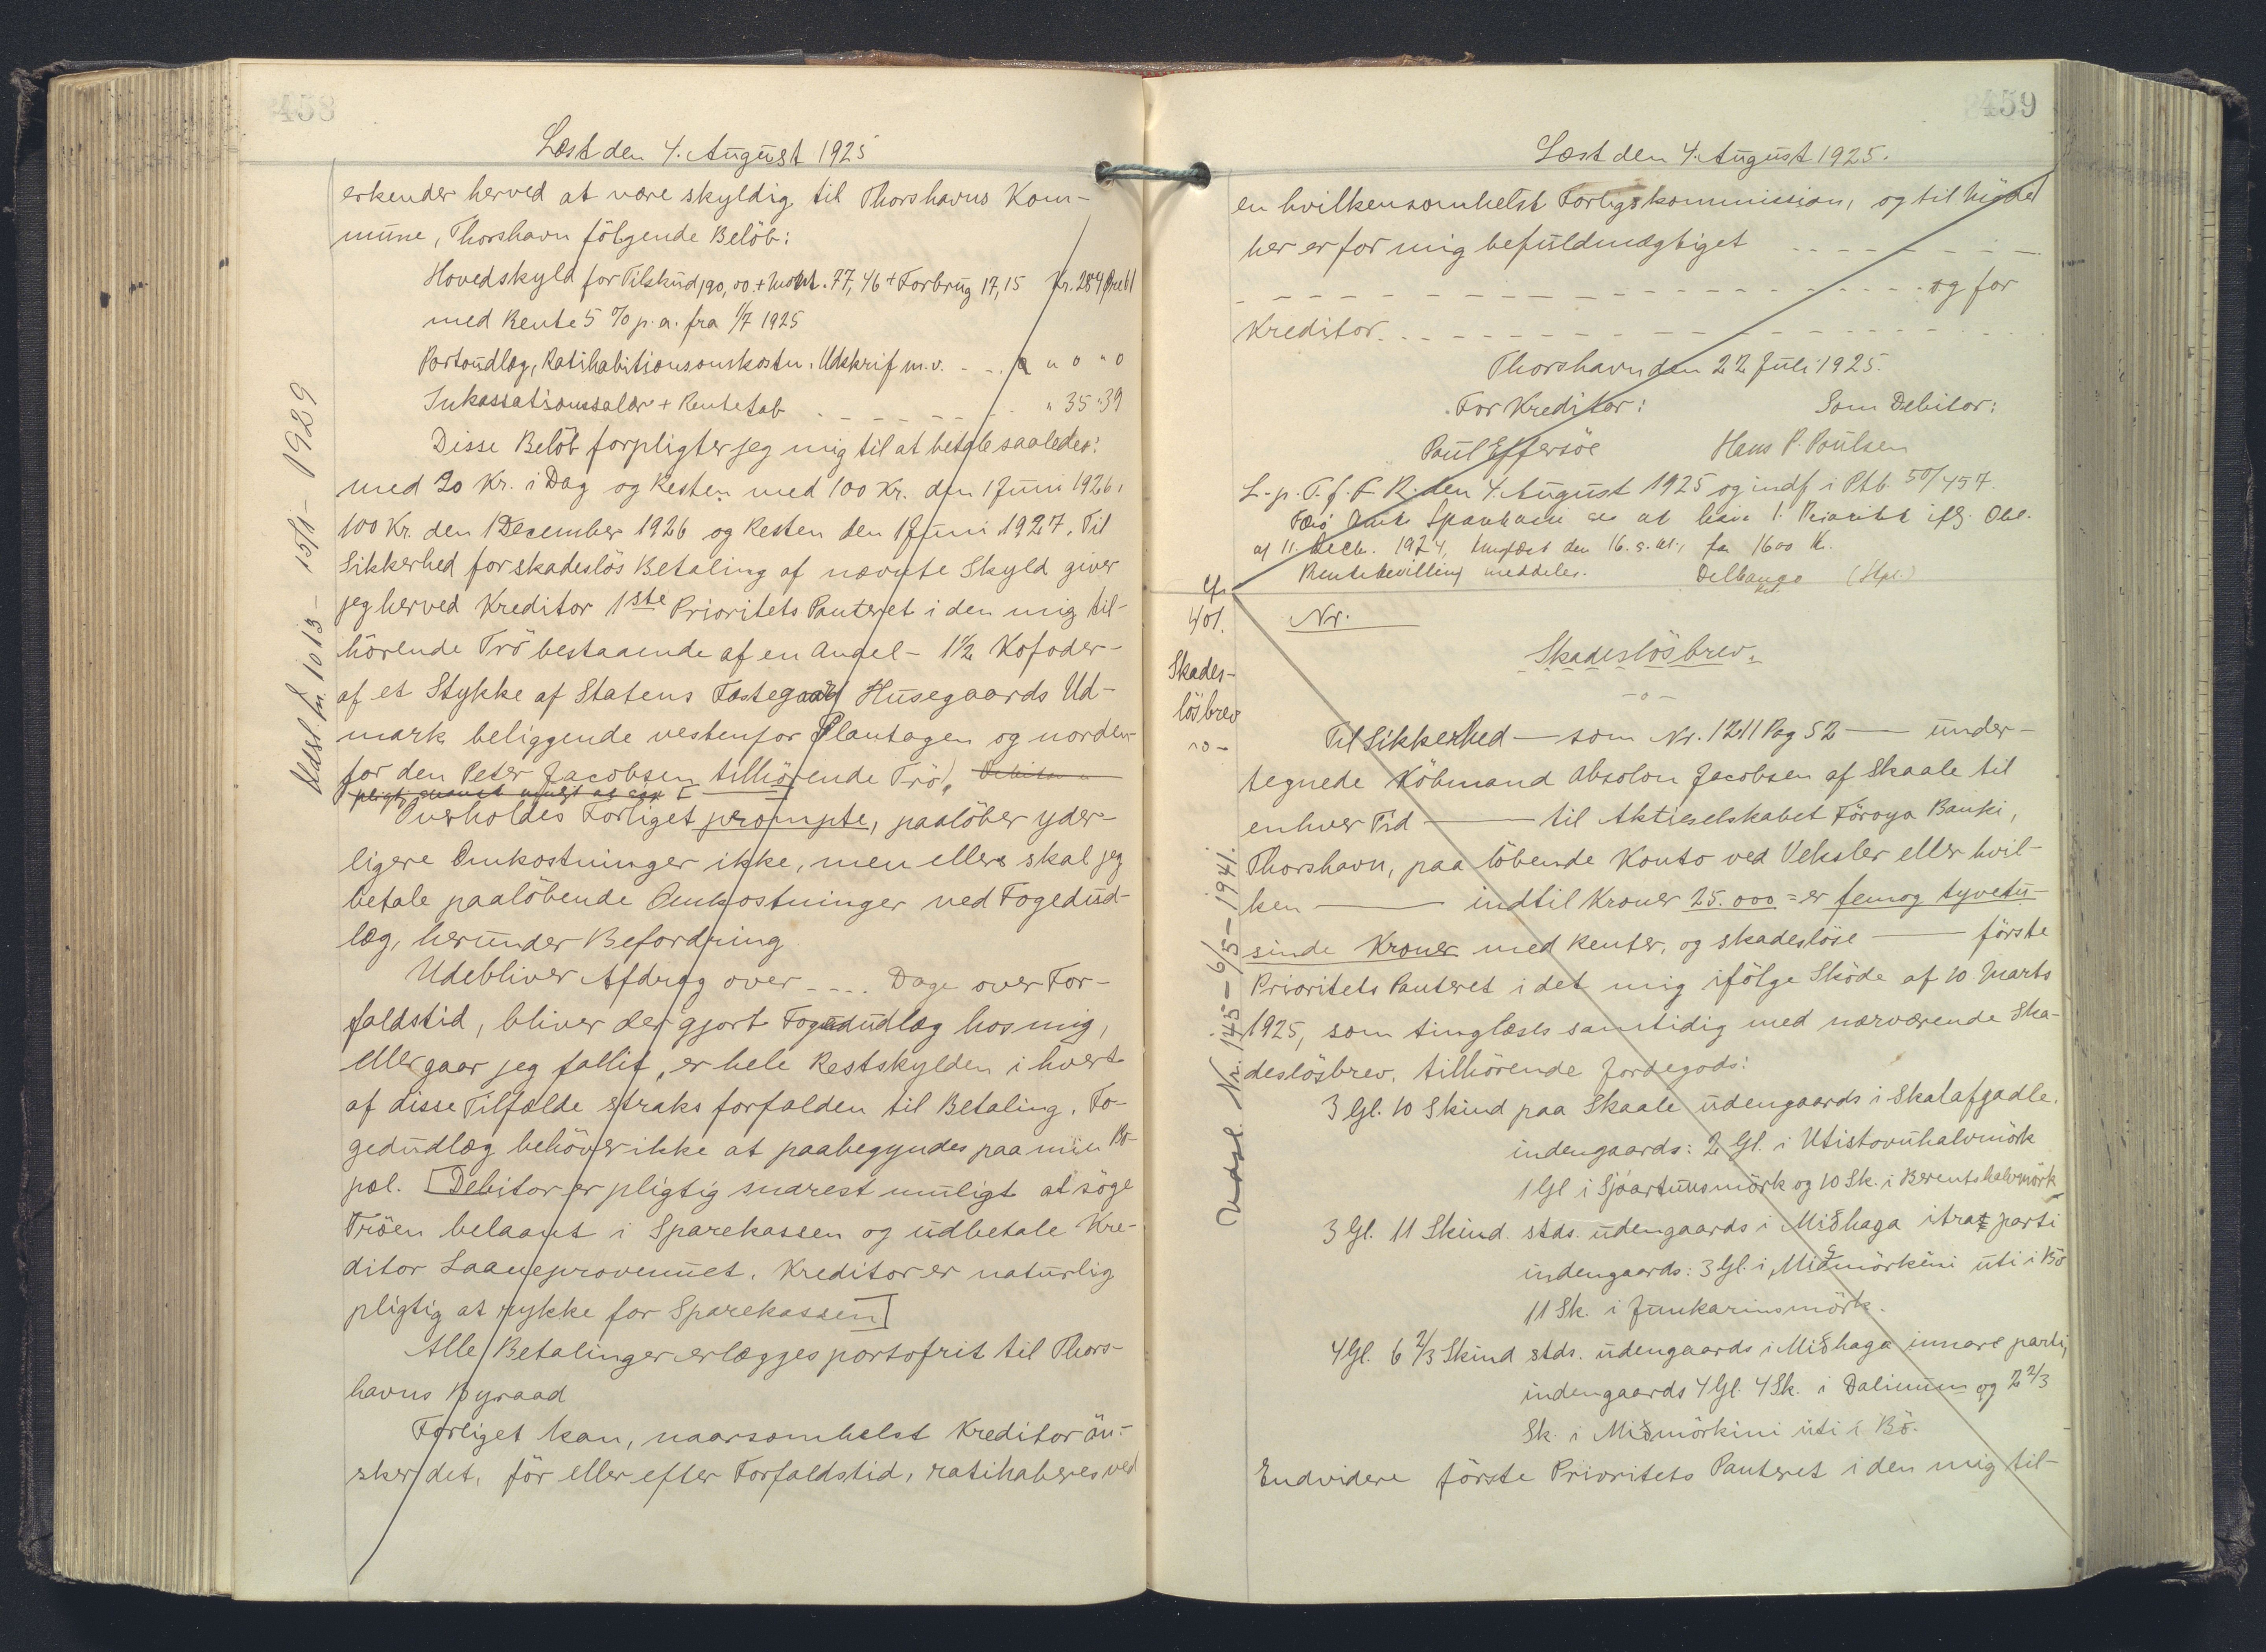 458
Læst den 4. August 1925
erkender herved at være skyldig til Thorshavns Kom-
mune, Thorshavn fölgende Belöb:
Hovedskyld for Tilskud 190,00 + Mont. 77,46 + Forbrug 17,15 Kr. 284 Öre 61
med Rente 5 % p.a. fra 1/7 1925
Portoudlæg, Ratihabitionsomkostn. Udskrif m.v. - - . " 0 " 0
Inkassationssalær + Rentetab . - - - - - - . " 35 " 39
Disse Belöb forpligter jeg mig til at betale saaledes:
med 20 Kr. i Dag og Resten med 100 Kr. den 1 Juni 1926,
100 Kr. den 1 December 1926 og Resten den 1 Juni 1927. Til
Sikkerhed for skadeslös Betaling af nævnte Skyld giver
jeg herved Kreditor 1ste Prioritets Panteret i den mig til-
hörende Trö bestaaende af en Andel - 1½ Kofoder -
af et Stykke af Statens Fæstegaard Husegaards Ud-
mark beliggende vestenfor Plantagen og norden-
for den Peter Jacobsen tilhörende Trö. Debitor er
pligtig snarest muligt at søge
Overholdes Forliget prompte, paalöber yder-
ligere Omkostninger ikke, men ellers skal jeg
betale paalöbende Omkostninger ved Fogedud-
læg, herunder Befordring
Udebliver Afdrag over - - - . Dage over For-
faldstid, bliver der gjort Fogedudlæg hos mig,
eller gaar jeg fallit, er hele Restskylden i hvert
af disse Tilfælde straks forfalden til Betaling. Fo-
gedudlæg behöver ikke at paabegyndes paa min Bo-
pæl. [Debitor er pligtig snarest muligt at söge
Tröen belaant i Sparekassen og udbetale Kre-
ditor Laaneprovenuet. Kreditor er naturlig
pligtig at rykke for Sparekassen]
Alle Betalinger erlægges portofrit til Thors-
havns Byraad
Forliget kan, naarsomhelst Kreditor ön-
sker det, för eller efter Forfaldstid, ratihaberes ved
Udsl. Nr. 1013 - 15/1 - 1929
459
Læst den 4. August 1925.
en hvilkensomhelst Forligskommission, og til Möde
her er for mig befuldmægtiget - - - - - - - -
- - - - - - - - - - - - - - - - - - - og for
Kreditor. - - - - - - - - - - - - - - - -
Thorshavn den 22 Juli 1925.
For Kreditor: Som Debitor:
Poul Effersöe Hans P. Poulsen
L. p. T. f. F. R. den 4. August 1925 og indf i Ptb. 50/457.
Færö Amts Sparekasse ses at have 1. Prioritet iflg. Obl.
af 11. Decb. 1924, tinglæst den 16. s. M., for 1600 Kr.
Rentebevilling meddeles. Delbanco (Hpl.)
401.
Skades-
lösbrev
-o-
Nr.
Skadeslösbrev.
-o-
Til Sikkerhed — som Nr. 1211 Pag 52 — under-
tegnede Köbmand Absolon Jacobsen af Skaale til
enhver Tid — til Aktieselskabet Föroya Banki,
Thorshavn, paa löbende Konto ved Veksler eller hvil-
ken — indtil Kroner 25.000 = er fem og tyvetu-
sinde Kroner med Renter, og skadeslöse — förste
Prioritets Panteret i det mig ifölge Sköde af 10 Marts
1925, som tinglæses samtidig med nærværende Ska-
deslösbrev, tilhörende Jordegods:
3 Gl. 10 Skind paa Skaale udengaards i Skalafgadle,
indengaards: 2 Gl. i Utistovuhalvmörk
1 Gl i Sjoartunsmörk og 10 Sk. i Berentshalvmörk
3 Gl. 11 Skind stds. udengaards i Miðhaga itrat parti
indengaards: 3 Gl. i Miðmörkini uti i Bö
11 Sk. i Junkarinsmörk.
4 Gl. 6 2/3 Skind stds. udengaards i Miðhaga innare parti,
indengaards 4 Gl. 4 Sk. i Dalinum og 2 2/3
Sk. i Miðmörkini uti i Bö.
Endvidere förste Prioritets Panteret i den mig til-
Udsl. Nr. 145 - 6/5 - 1941.